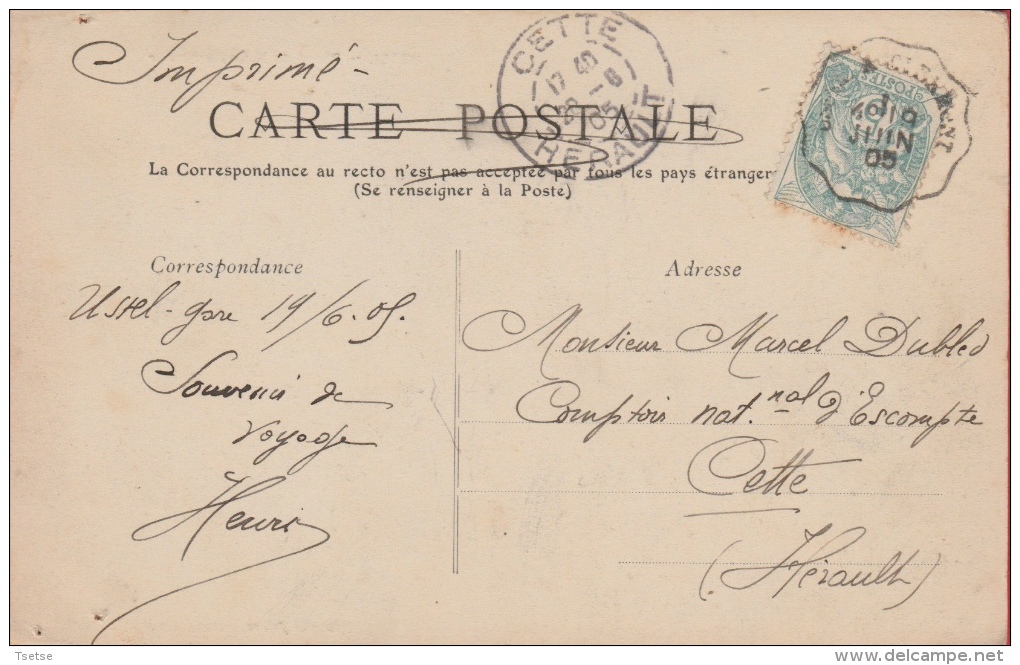 Imprimé -
CETTE
17 40
20 - 6
05
HERAULT
CLERMONT
19
JUIN
05
POSTES
CARTE POSTALE
La Correspondance au recto n'est pas acceptée par tous les pays étranger
(Se renseigner à la Poste)
Correspondance
Ussel-gare 19/6.05.
Souvenir de
voyage
Henri
Adresse
Monsieur Marcel Dubled
Comptoir nat.nal d'Escompte
Cette
(Hérault)
Tsetse
delcampe.net